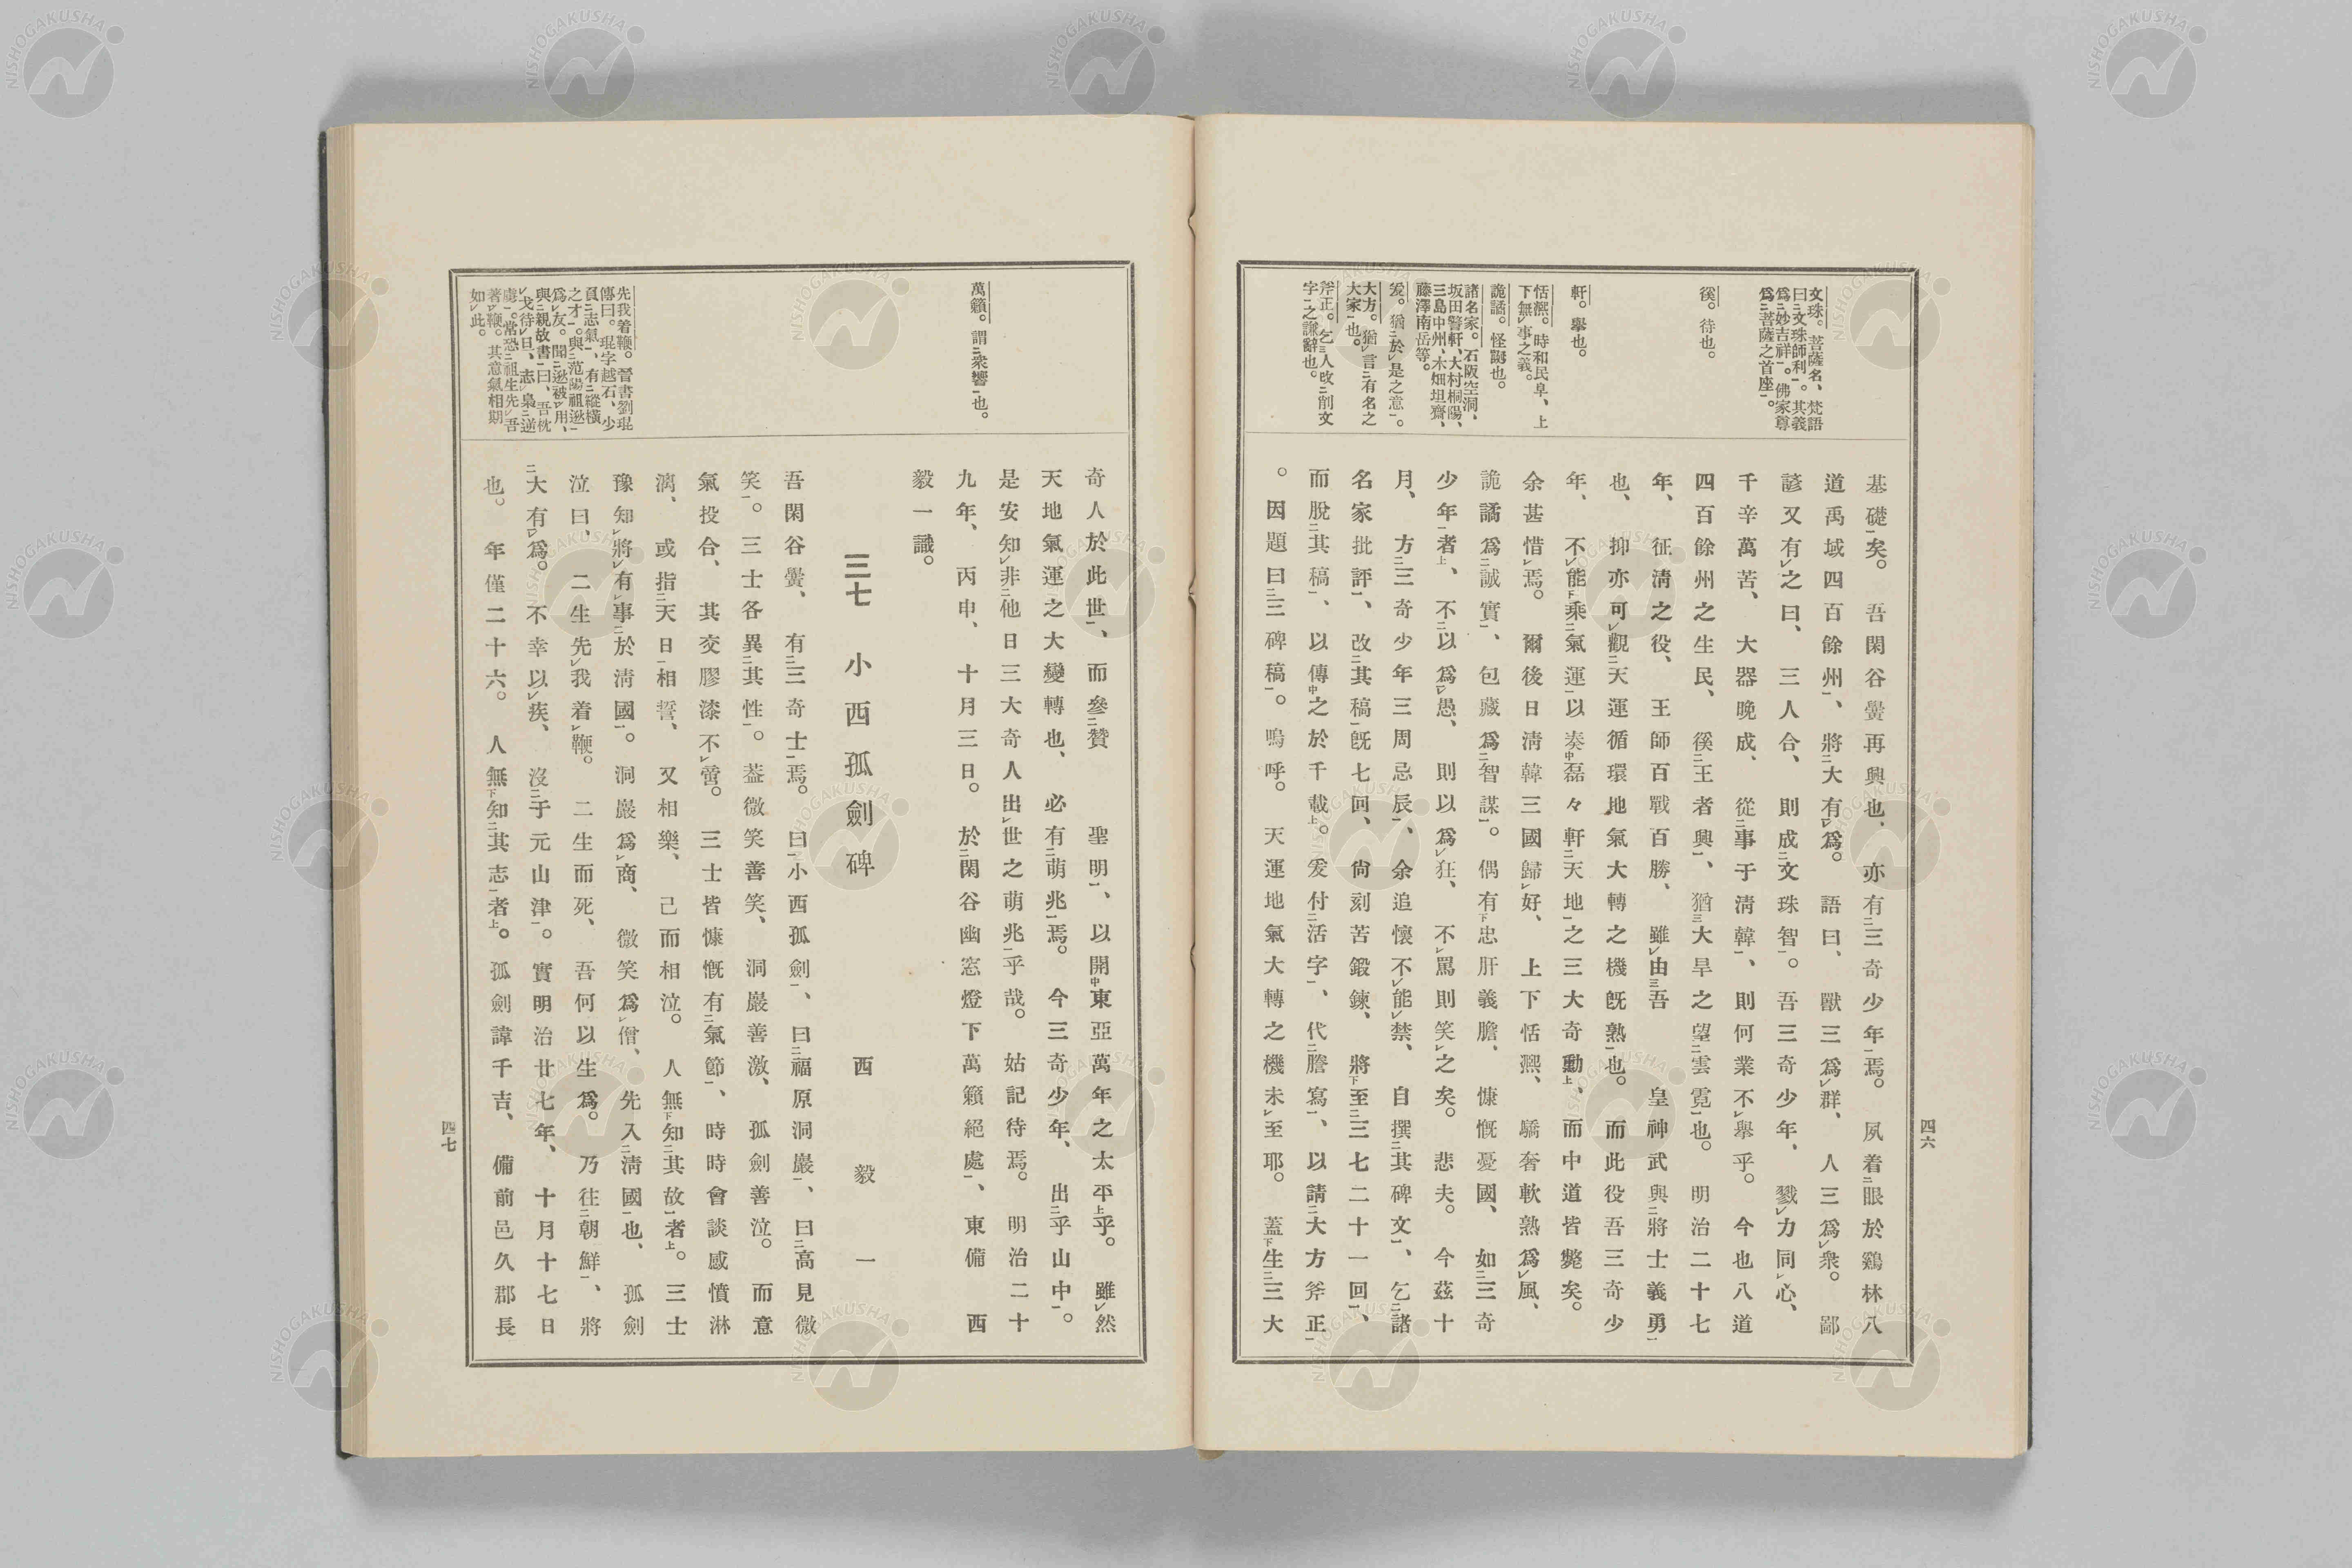 文珠。菩薩名、梵語
曰㆓文珠師利㆒。其義
爲㆓妙吉祥㆒。佛家尊
爲㆓菩薩之首座㆒。
徯。待也。
軒。擧也。
恬凞。時和民阜、上
下無㆑事之義。
詭譎。怪闘也。
諸名家。石阪空洞、
坂田警軒、大村桐陽、
三島中州、木畑坦齋、
藤澤南岳等。
爰。猶㆓於㆑是之意㆒。
大方。猶㆑言㆓有名之
大家㆒也。
斧正。乞㆔人改㆓削文
字㆒之謙辭也。
基礎㆒矣。吾閑谷黌再興也、亦有㆓三奇少年㆒焉。夙着㆓眼於鷄林八
道禹域四百餘州㆒、將㆓大有㆒㆑爲。語曰、獸三爲㆑群、人三爲㆑衆。鄙
諺又有㆑之曰、三人合、則成㆓文珠智㆒。吾三奇少年、戮㆑力同㆑心、
千辛萬苦、大器晚成、從㆓事于淸韓㆒、則何業不㆑擧乎。今也八道
四百餘州之生民、徯㆓王者興㆒、猶㆔大旱之望㆓雲霓㆒也。明治二十七
年、征淸之役、王師百戰百勝、雖㆑由㆔吾皇神武與㆓將士義勇㆒
也、抑亦可㆑觀㆓天運循環地氣大轉之機既熟㆒也。而此役吾三奇少
年、不㆑能㆘乘㆓氣運㆒以奏㆗磊々軒㆓天地㆒之三大奇勳㆖、而中道皆斃矣。
余甚惜㆑焉。爾後日淸韓三國歸㆑好、上下恬凞、驕奢軟熟爲㆑風、
詭譎爲㆓誠實㆒、包藏爲㆓智謀㆒。偶有㆘忠肝義膽、慷慨憂國、如㆓三奇
少年㆒者㆖、不㆓以爲㆒㆑愚、則以爲㆑狂、不㆑罵則笑㆑之矣。悲夫。今茲十
月、方㆓三奇少年三周忌辰㆒、余追懷不㆑能㆑禁、自撰㆓其碑文㆒、乞㆓諸
名家批評㆒、改㆓其稿㆒既七回、尙刻苦鍛鍊、將㆘至㆓三七二十一回㆒、
而脫㆓其稿㆒、以傳㆗之於千載㆖。爰付㆓活字㆒、代㆓謄寫㆒、以請㆓大方斧正㆒
。因題曰㆓三碑稿㆒。嗚呼。天運地氣大轉之機未㆑至耶。蓋㆘生㆓三大
四六
萬籟。謂㆓衆響㆒也。
先我着鞭。晉書劉琨
傳曰。琨字越石、少
負㆓志氣㆒、有㆓縱橫
之才㆒。與㆓范陽祖逖㆒
爲㆑友。聞㆓逖被㆑用、
與㆓親故書㆒曰、吾枕
㆑戈待㆑旦、志㆑梟㆓逆
虜㆒。常恐㆓祖生先㆑吾
著㆑鞭。其意氣相期
如㆑此。
奇人於此世㆒、而參㆓贊聖明㆒、以開㆗東亞萬年之太平㆖乎。雖㆑然
天地氣運之大變轉也、必有㆓萌兆㆒焉。今三奇少年、出㆓乎山中㆒。
是安知㆑非㆓他日三大奇人出㆑世之萌兆㆒乎哉。姑記待焉。明治二十
九年、丙申、十月三日。於㆓閑谷幽窓燈下萬籟絕處㆒、東備西
毅一識。
三七　小西孤劍碑
西毅一
吾閑谷黌、有㆓三奇士㆒焉。曰㆓小西孤劍㆒、曰㆓福原洞巖㆒、曰㆓高見微
笑㆒。三士各異㆓其性㆒。葢微笑善笑、洞巖善激、孤劍善泣。而意
氣投合、其交膠漆不㆑啻。三士皆慷慨有㆓氣節㆒、時時會談感憤淋
漓、或指㆓天日㆒相誓、又相樂、己而相泣。人無㆘知㆓其故㆒者㆖。三士
豫知㆑將㆑有㆑事㆓於淸國㆒。洞巖爲㆑商、微笑爲㆑僧、先入㆓淸國㆒也、孤劍
泣曰、二生先㆑我着㆑鞭。二生而死、吾何以生爲。乃往㆓朝鮮㆒、將
㆓大有㆒㆑爲。不幸以㆑疾、沒㆓于元山津㆒。實明治廿七年、十月十七日
也。年僅二十六。人無㆘知㆓其志㆒者㆖。孤劍諱千吉、備前邑久郡長
四七
NISHOGAKUSHA